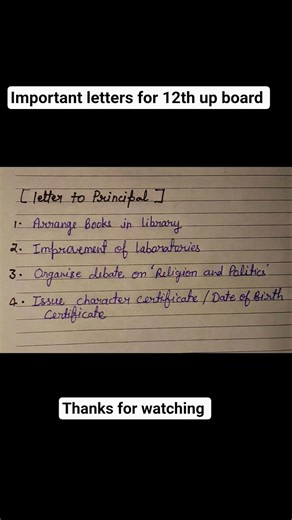 Important letters for 12th up board
[ letter to Principal ]
1. Arrange Books in library
2. Improvement of laboratories
3. Organise debate on 'Religion and Politics'
4. Issue character certificate / Date of Birth
Certificate
Thanks for watching